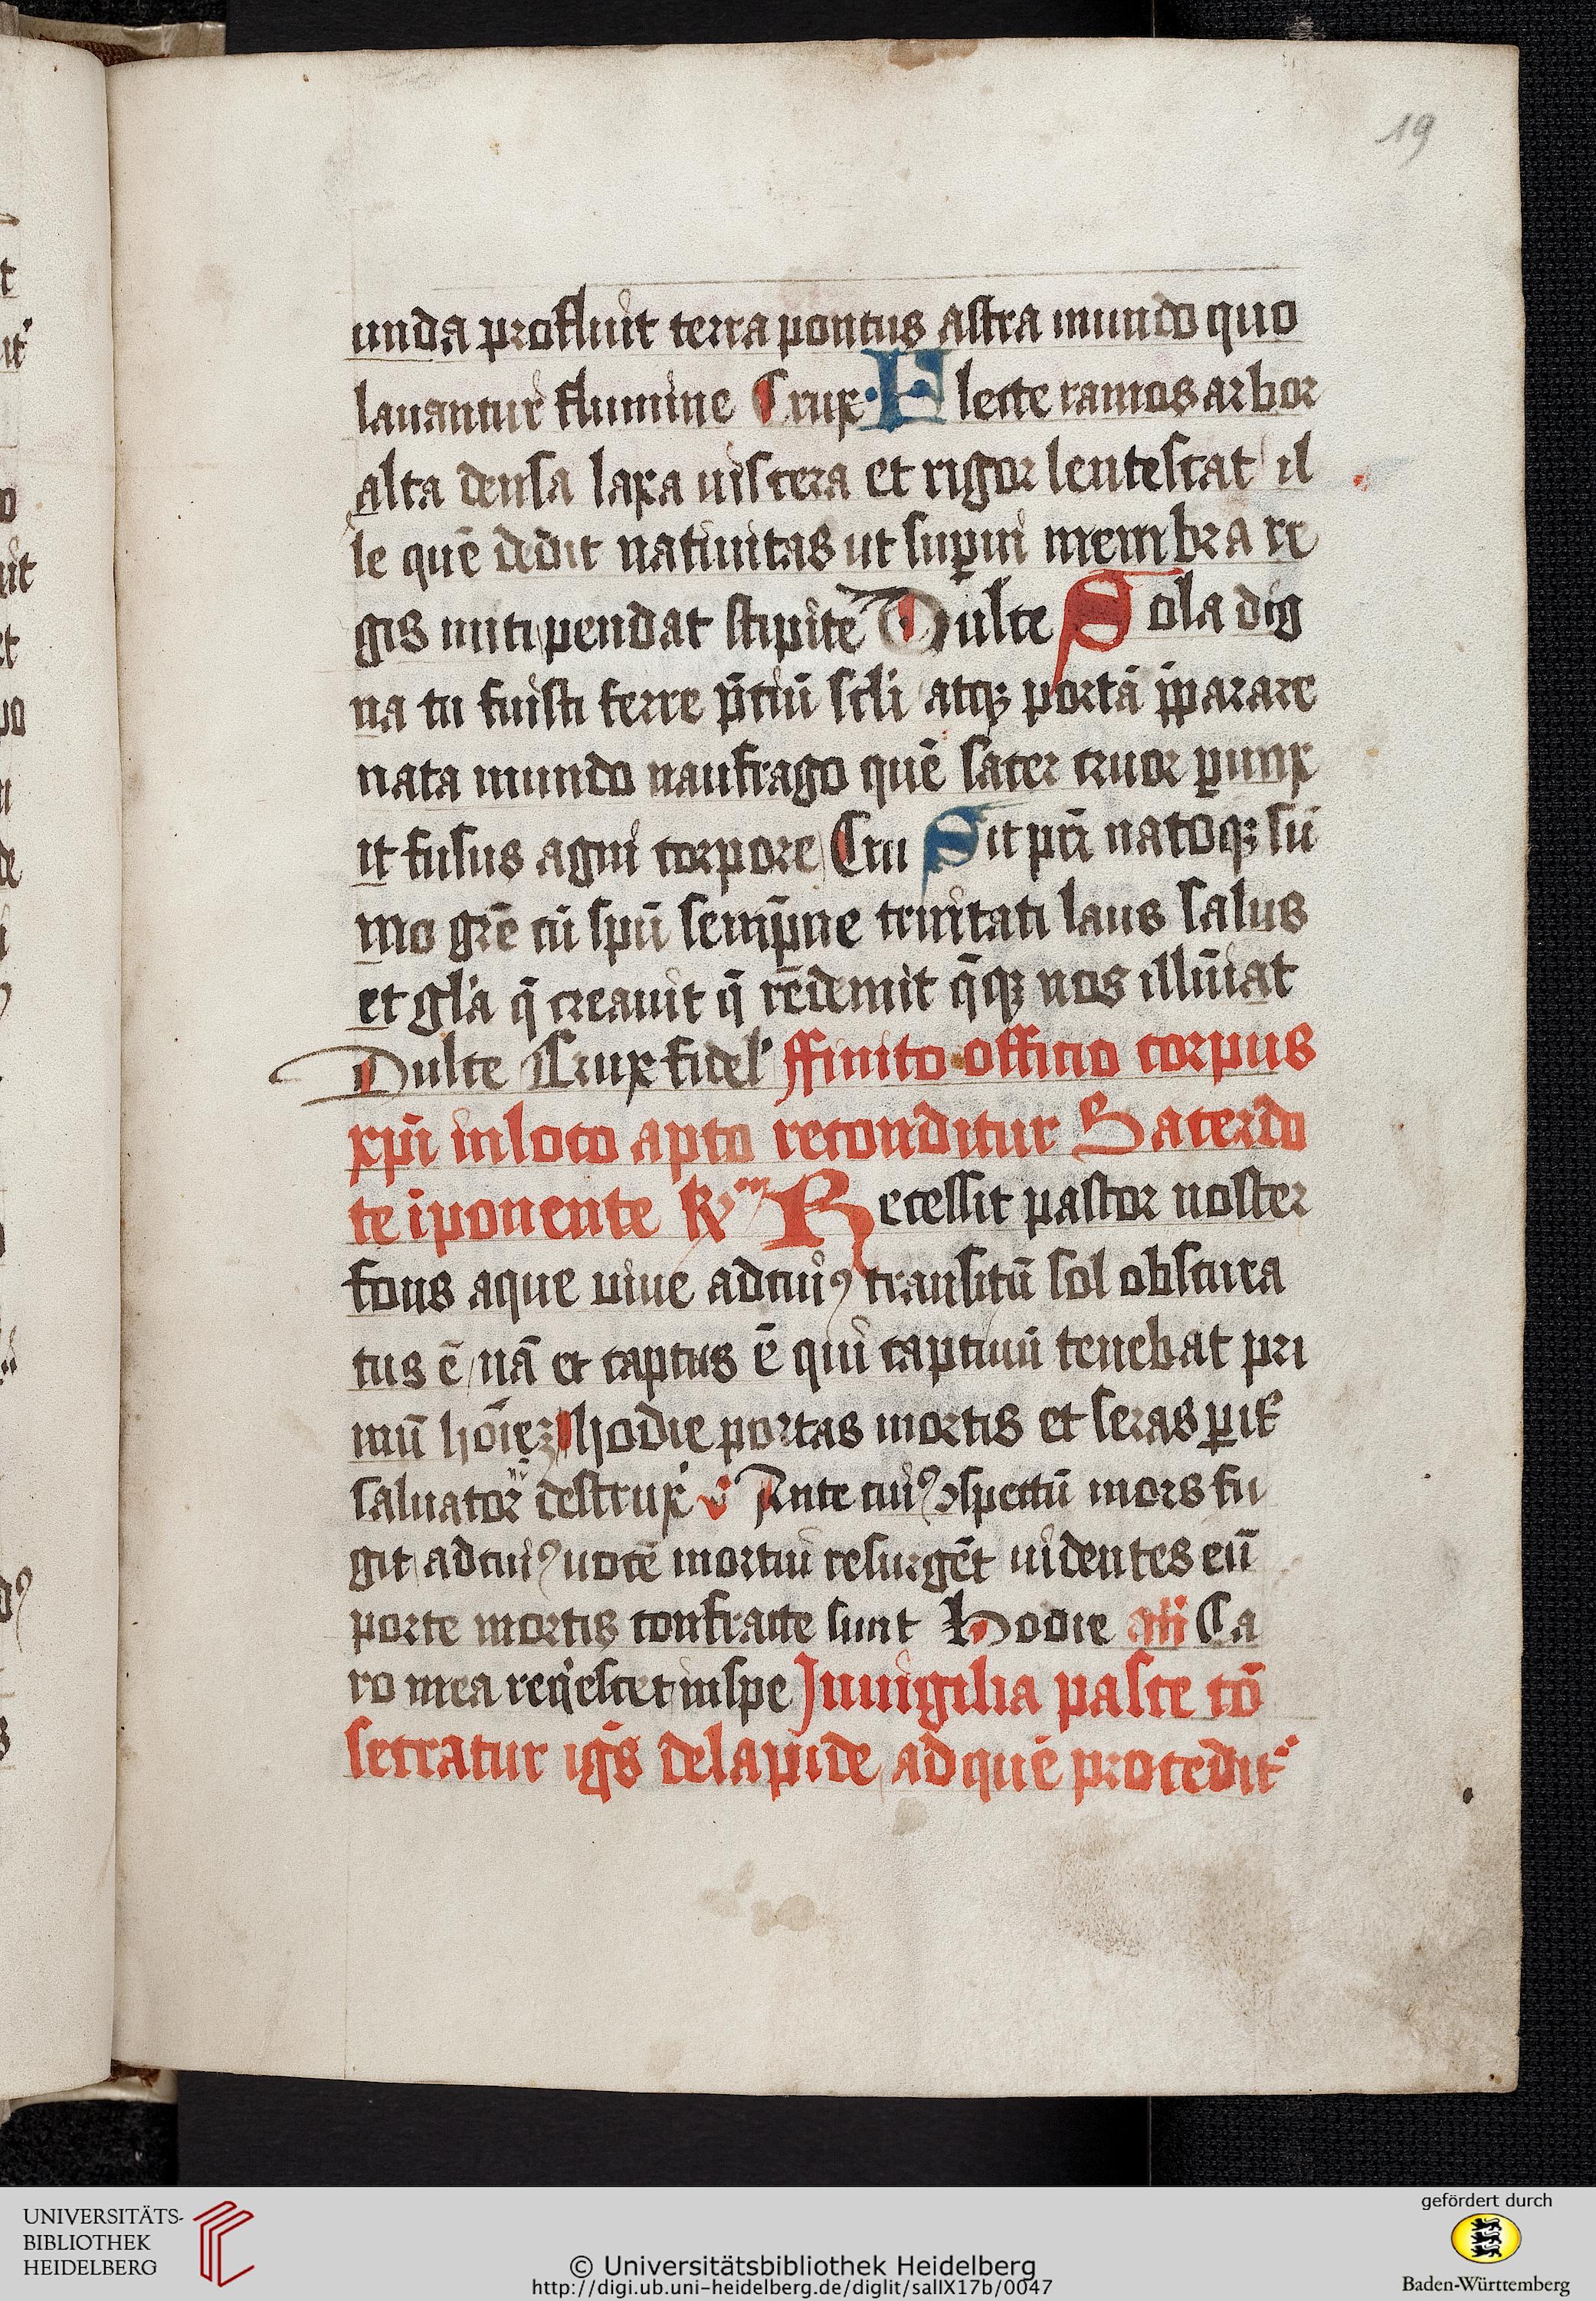 19
unda profluit terra pontus astra mundo quo
lauantur flumine Crux · Flecte ramos arbor
alta densa laxa uiscera et rigor lentescat il
le quē dedit natiuitas ut suꝑni membra re
gis miti pendat stipite Dulce Sola dig
na tu fuisti ferre p̄ciū scli atqꝫ portā p̄parare
nata mundo naufrago quē sacer cruor ꝑunx
it fusus agni corpore Cru Sit pr̄i natoqꝫ sū
mo grē cū spū semp̄ne trinitati laus salus
et glā q̄ creauit q̄ rēdemit q̄qꝫ nos illūiat
Dulce Crux fidel' ffinito officio corpus
xpī in loco apto reconditur Sacerdo
te īponente Recessit pastor noster
fons aque uiue ad cuiꝰ transitū sol obscura
tus ē nā et captus ē qui captiuū tenebat pri
mū hōiēꝫ hodie portas mortis et seras ꝑit̉
saluator̄ destrux' v̉ Ante cuiꝰ ↄspectū mors fu
git ad cuiꝰ uocē mortui resurgēt uidentes eū
porte mortis confracte sunt Hodie an̄ Ca
ro mea req̇escet in spe In uigilia pasce cō
secratur igs̄ de lapide ad quē procedit̉
UNIVERSITÄTS-
BIBLIOTHEK
HEIDELBERG
© Universitätsbibliothek Heidelberg
http://digi.ub.uni-heidelberg.de/diglit/salIX17b/0047
gefördert durch
Baden-Württemberg